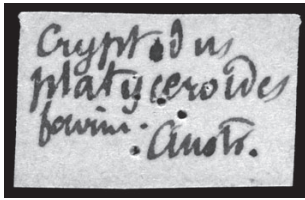 Cryptodus
platyceroides
fairm.
Austr.